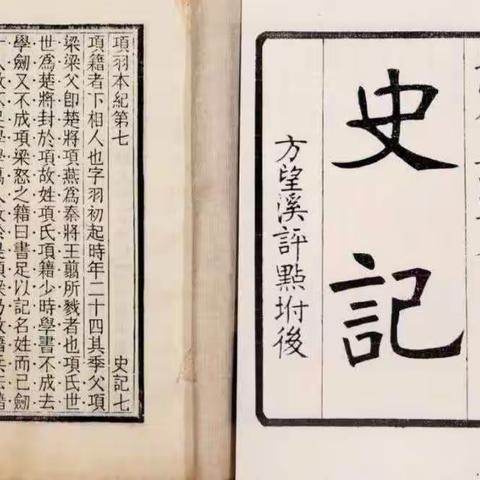 史記
方望溪評點坿後
項羽本紀第七 史記七
項籍者下相人也字羽初起時年二十四其季父項
梁梁父卽楚將項燕爲秦將王翦所戮者也項氏世
世爲楚將封於項故姓項氏項籍少時學書不成去
學劒又不成項梁怒之籍曰書足以記名姓而已劒